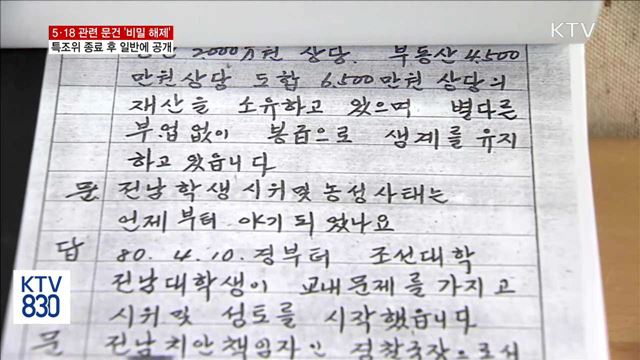 5·18 관련 문건 '비밀 해제'
특조위 종료 후 일반에 공개
KTV
2000만원 상당. 부동산 4.500
만원상당 도합 6.500만원 상당의
재산을 소유하고 있으며 별다른
부업없이 봉급으로 생계를 유지
하고 있읍니다
문 전남학생 시위및 농성사태는
언제부터 야기되었나요
답 80. 4. 10. 경부터 조선대학
전남대학생이 교내문제를 가지고
시위및 성토를 시작했읍니다
문 전남치안책임자인 경찰국장으로서
KTV
830